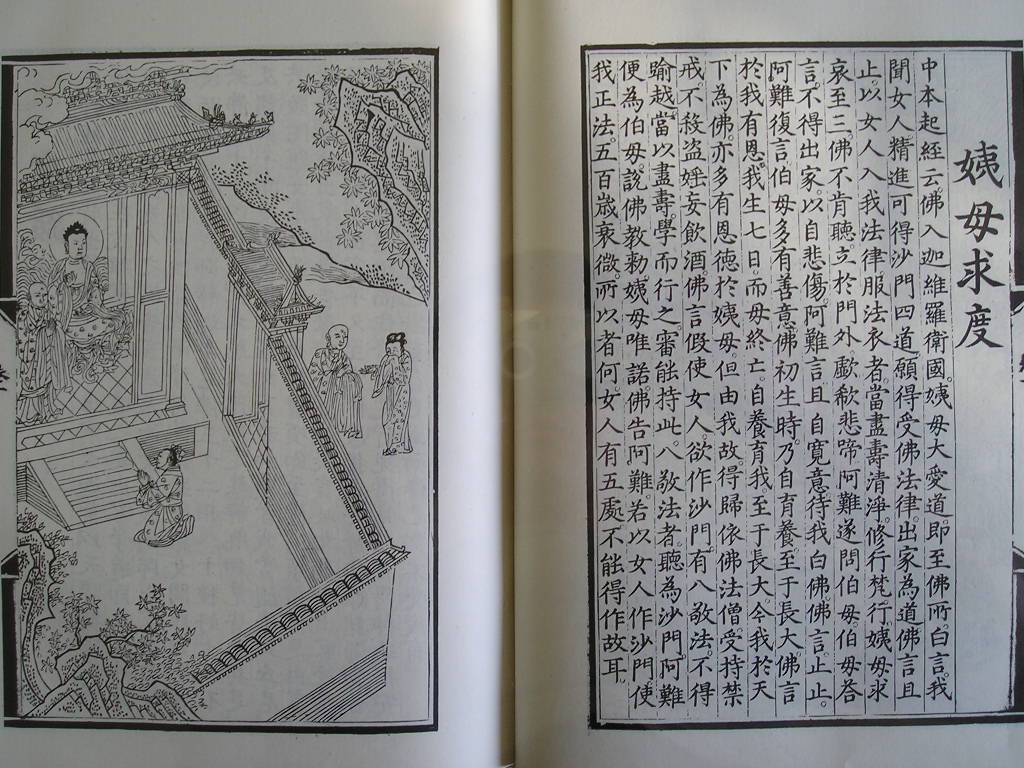 姨母求度
中本起經云。佛入迦維羅衛國。姨母大愛道。即至佛所。白言。我
聞女人精進可得沙門四道。願得受佛法律。出家為道。佛言且
止。以女人入我法律服法衣者。當盡壽清淨。修行梵行。姨母求
哀至三。佛不肯聽。立於門外。歔欷悲啼。阿難遂問伯母。伯母荅
言。不得出家。以自悲傷。阿難言。且自寬意。待我白佛。佛言。止止。
阿難復言。伯母多有善意。佛初生時。乃自育養至于長大。佛言
於我有恩。我生七日。而母終亡。自養育我。至于長大。今我於天
下為佛。亦多有恩德於姨母。但由我故得歸依佛法僧。受持禁
戒。不殺盜婬妄飲酒。佛言。假使女人。欲作沙門。有八敬法。不得
踰越。當以盡壽。學而行之。審能持此。八敬法者。聽為沙門。阿難
便為伯母。說佛教勑。姨母唯諾。佛告阿難。若以女人作沙門。使
我正法。五百歲衰微。所以者何。女人有五處。不能得作故耳。